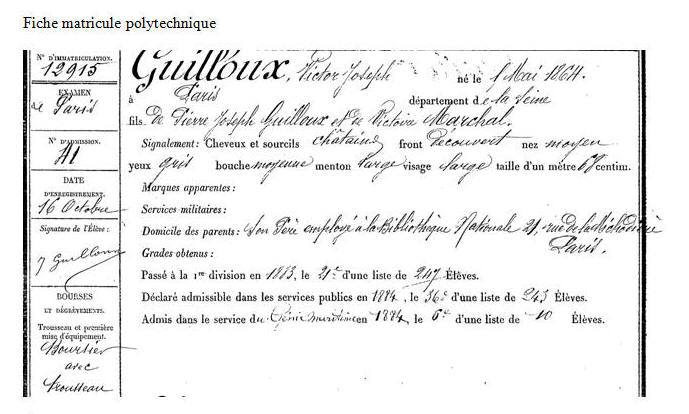 Fiche matricule polytechnique
N° D'IMMATRICULATION.
12915
EXAMEN
de Paris
N° D'ADMISSION.
41
DATE
D'ENREGISTREMENT.
16 Octobre
Signature de l'Élève :
V Guilloux
BOURSES
ET DÉGRÈVEMENTS.
Trousseau et première
mise d'équipement.
Boursier
avec
trousseau
Guilloux, Victor Joseph né le 1 Mai 1864.
à Paris département de la Seine
fils de Pierre Joseph Guilloux et de Victoire Marchal.
Signalement : Cheveux et sourcils châtains front découvert nez moyen
yeux gris bouche moyenne menton large visage large taille d'un mètre 68 centim.
Marques apparentes :
Services militaires :
Domicile des parents : Son Père employé à la Bibliothèque Nationale 21, rue de la Michodière
Paris.
Grades obtenus :
Passé à la 1re division en 1883, le 21e d'une liste de 247 Élèves.
Déclaré admissible dans les services publics en 1884, le 36e d'une liste de 243 Élèves.
Admis dans le service du Génie maritime en 1884, le 6e d'une liste de 10 Élèves.